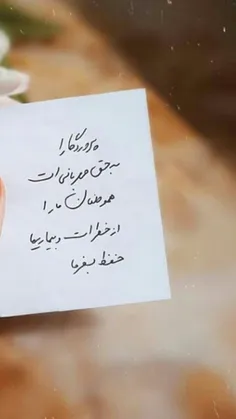 پروردگارا
به حق مهربانی ات
هموطنان ما را
از خطرات و بیماریها
حفظ بفرما